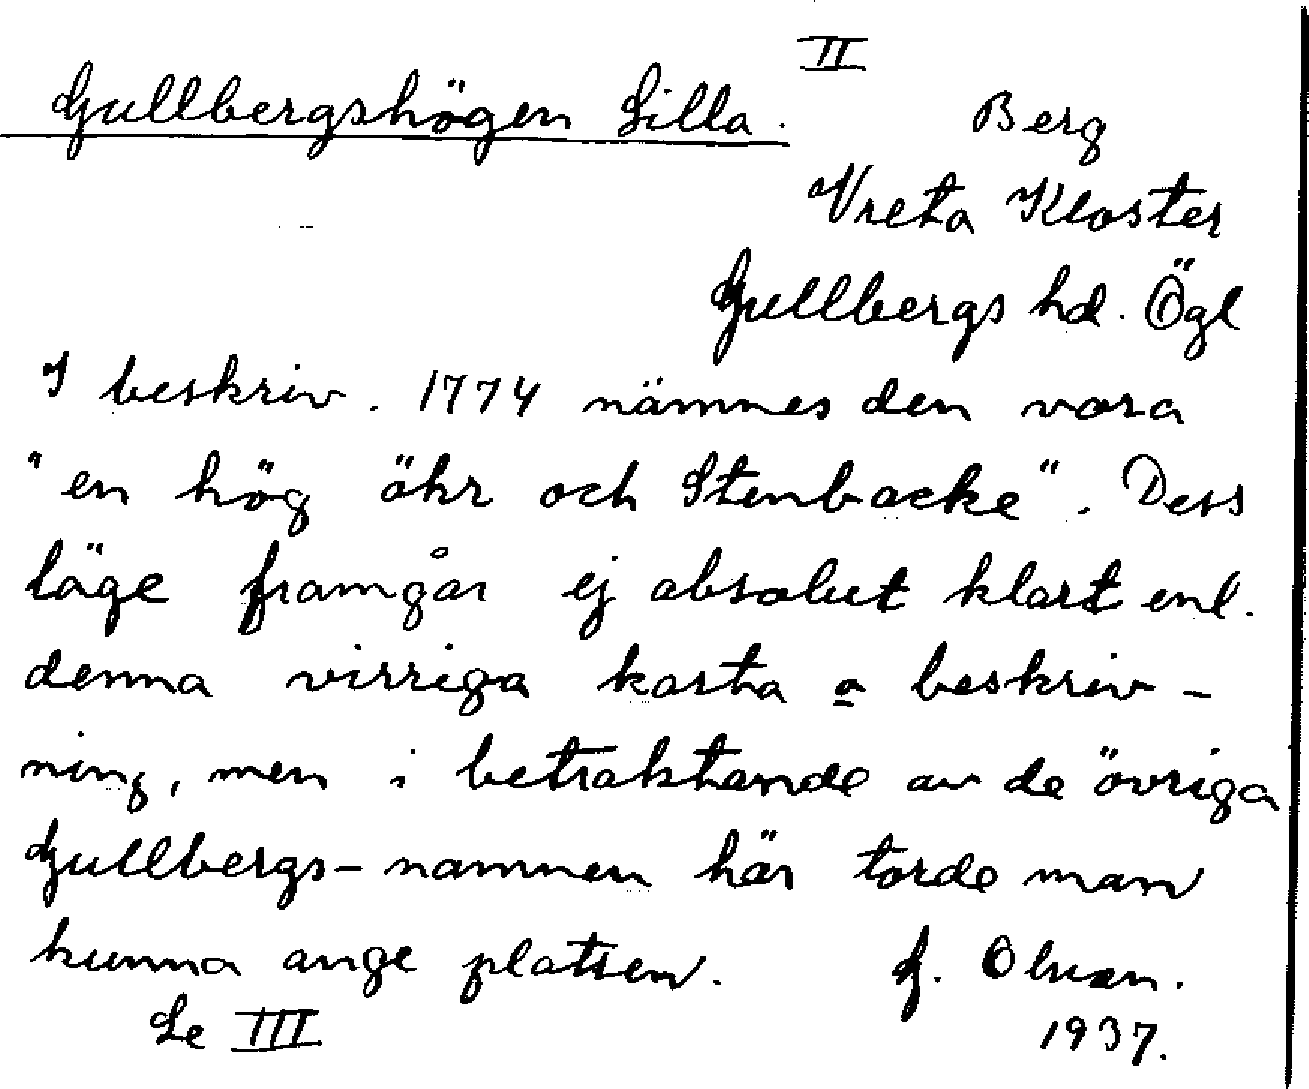 II
Gullbergshögen Lilla.
Berg
Vreta Kloster
Gullbergs hd. Ögl
I beskriv. 1774 nämnes den vara
"en hög öhr och Stenbacke". Dess
läge framgår ej absolut klart enl.
denna virriga karta o beskriv-
ning, men i betraktande av de övriga
Gullbergs-namnen här torde man
kunna ange platsen.
Olsson.
Se III
1937.